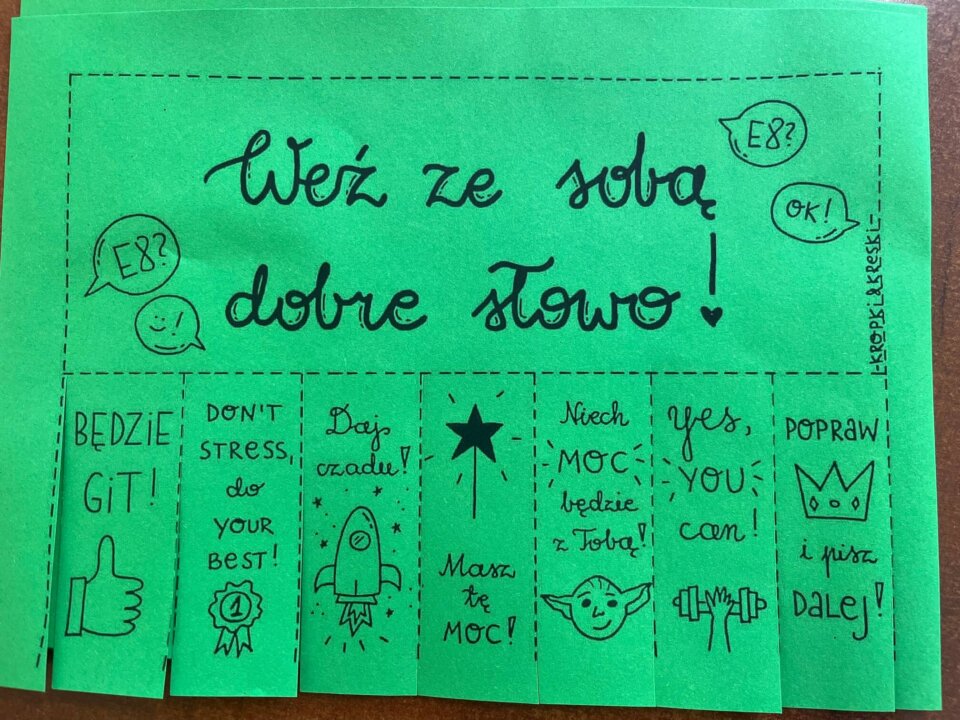 Weź ze sobą
dobre słowo!
E8?
OK!
E8?
!
-KROPKI&KRESKI-
BĘDZIE
GIT!
DON'T
STRESS,
do
YOUR
BEST!
1
Daj
czadu!
Masz
tę
MOC!
Niech
MOC
będzie
z Tobą!
yes,
YOU
can!
POPRAW
i pisz
DALEJ!